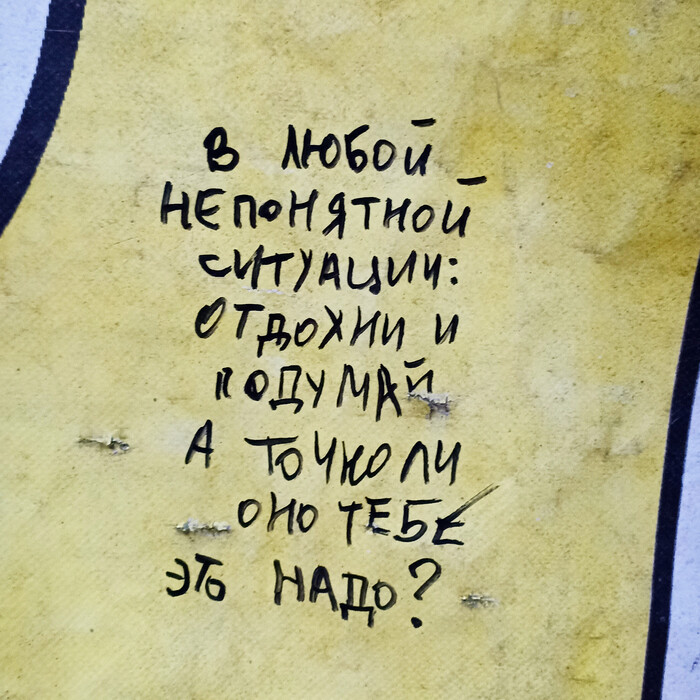 В ЛЮБОЙ
НЕПОНЯТНОЙ
СИТУАЦИИ:
ОТДОХНИ И
ПОДУМАЙ
А ТОЧНО ЛИ
ОНО ТЕБЕ
ЭТО НАДО?